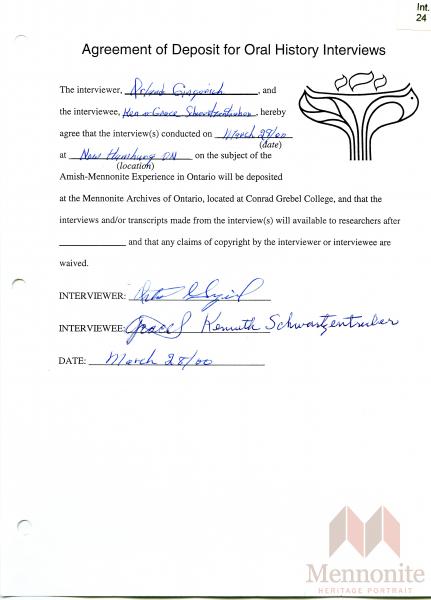 Int.
24
Agreement of Deposit for Oral History Interviews
The interviewer, Orland Gingerich, and
the interviewee, Ken & Grace Shwartzentruber, hereby
agree that the interview(s) conducted on March 28/00
(date)
at New Hamburg ON on the subject of
(location)
Amish-Mennonite Experience in Ontario will be deposited
at the Mennonite Archives of Ontario, located at Conrad Grebel College, and that the
interviews and/or transcripts made from the interview(s) will available to researchers after
__________ and that any claims of copyright by the interviewer or interviewee are
waived.
INTERVIEWER:
INTERVIEWEE: Grace Kenneth Schwartzentruber
DATE: March 28/00
Mennonite
HERITAGE PORTRAIT